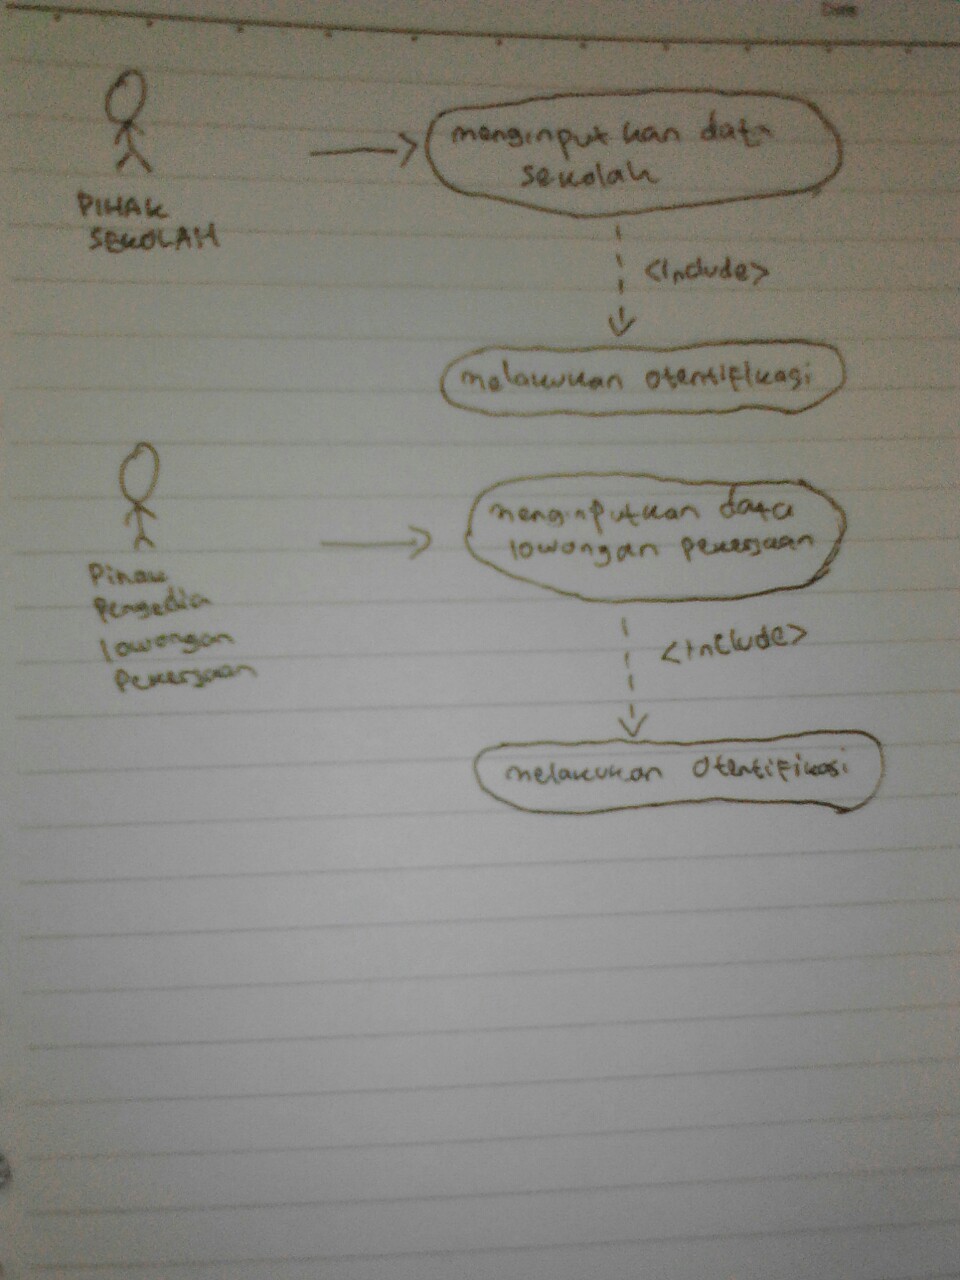 Date
PIHAK
SEKOLAH
menginputkan data
sekolah
<Include>
melakukan otentifikasi
Pihak
Pengedia
lowongan
Pekerjaan
menginputkan data
lowongan pekerjaan
<Include>
melakukan Otentifikasi